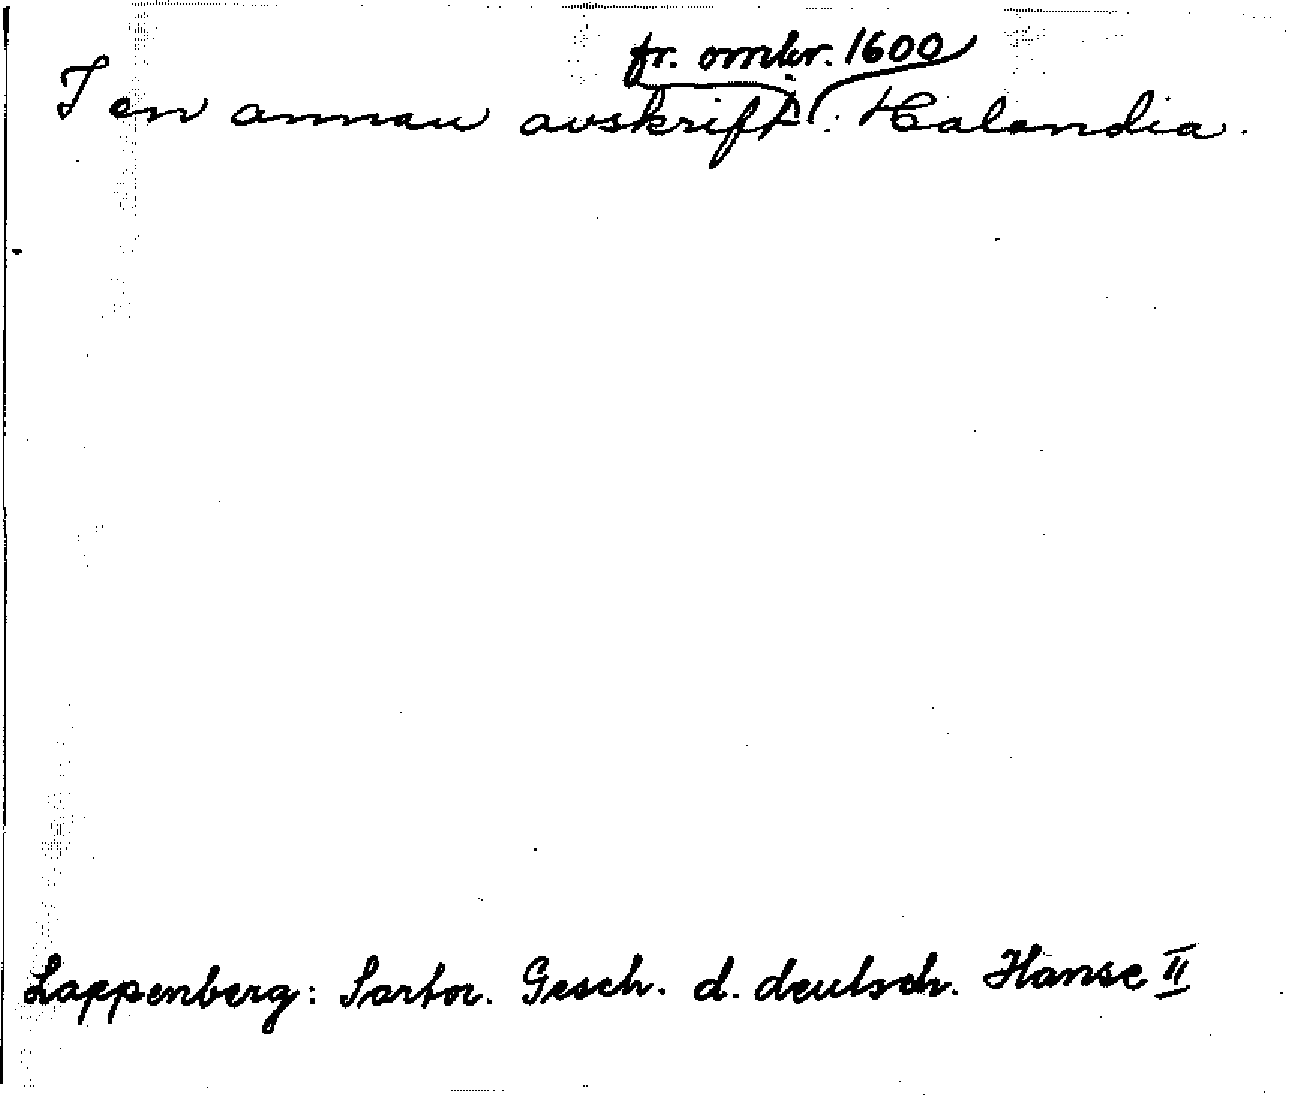 fr. omkr. 1600
I en annan avskrift: Halandia.
Lappenberg: Sartor. Gesch. d. deutsch. Hanse II